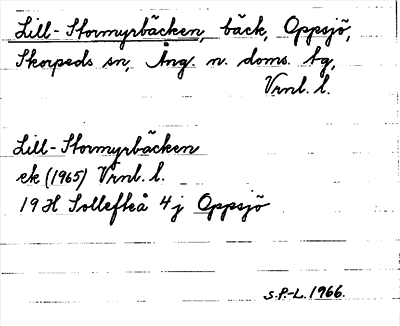 Lill-Stormyrbäcken, bäck, Oppsjö,
Skorpeds sn, Ång. n. doms. tg,
Vrnl. l.
Lill-Stormyrbäcken
ek (1965) Vrnl. l.
19H Sollefteå 4j Oppsjö
S.P.-L. 1966.